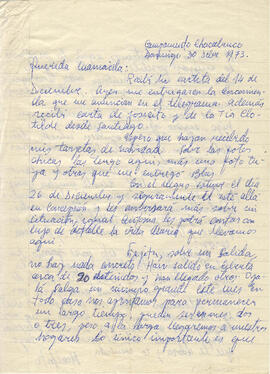 Campamento Chacabuco
Domingo 30 Dbre 1973.
Querida Mamacita:
Recibí su cartita del 14 de
Diciembre. Ayer me entregaron la encomienda
que me anuncian en el telegrama. Además
recibí carta de Joselito y de la Tía Clo-
tilde desde Santiago.
Espero que hayan recibido
mis tarjetas de navidad. Sobre las fotos
chicas las tengo aquí más una foto tu-
ya y otras que me entregó
Con el negro estuve el día
26 de Diciembre y seguramente él esté allá
en Concepción y les entregará más sobre mi
situación, igual Antonio les podrá contar con
lujo de detalle la vida diaria que llevamos
aquí.
sobre mi salida
no hay nada concreto! Han salido en libertad
cerca de 20 detenidos y han llegado otros. Ojalá
salga un número grande este mes en
todo caso nos aprestamos para permanecer
un largo tiempo, pueden ser meses, dos
o tres, pero a la larga llegaremos a nuestros
hogares. Lo único importante es que